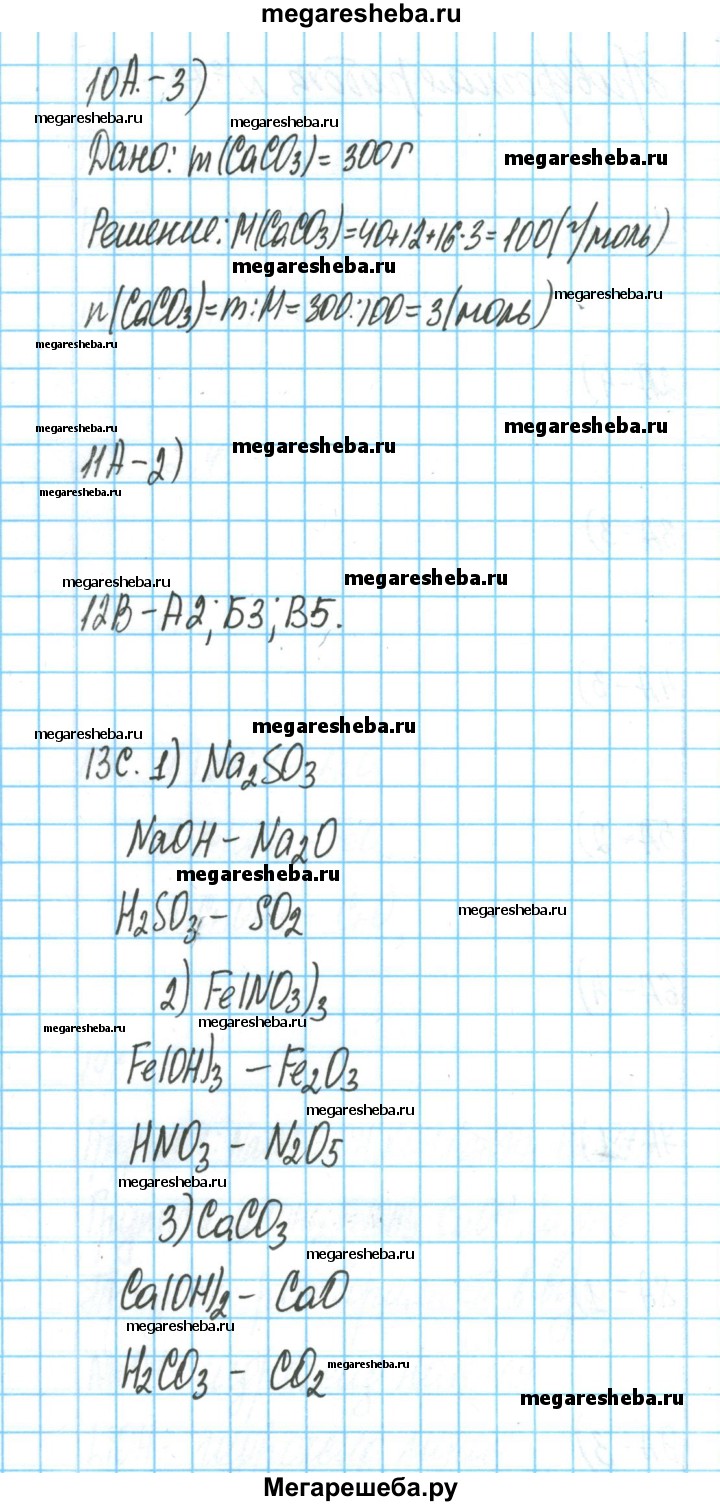 megaresheba.ru
10А.-3)
megaresheba.ru
megaresheba.ru
Дано: m(CaCO3)=300г
megaresheba.ru
Решение: M(CaCO3)=40+12+16·3=100(г/моль)
megaresheba.ru
megaresheba.ru
n(CaCO3)=m:M=300:100=3(моль)
megaresheba.ru
megaresheba.ru
megaresheba.ru
megaresheba.ru
11А-2)
megaresheba.ru
megaresheba.ru
megaresheba.ru
12В-А2; Б3; В5.
megaresheba.ru
megaresheba.ru
13С. 1) Na2SO3
NaOH - Na2O
megaresheba.ru
H2SO3 - SO2
megaresheba.ru
2) Fe(NO3)3
megaresheba.ru
megaresheba.ru
Fe(OH)3 - Fe2O3
megaresheba.ru
HNO3 - N2O5
megaresheba.ru
3) CaCO3
megaresheba.ru
Ca(OH)2 - CaO
megaresheba.ru
H2CO3 - CO2
megaresheba.ru
megaresheba.ru
Мегарешеба.ру